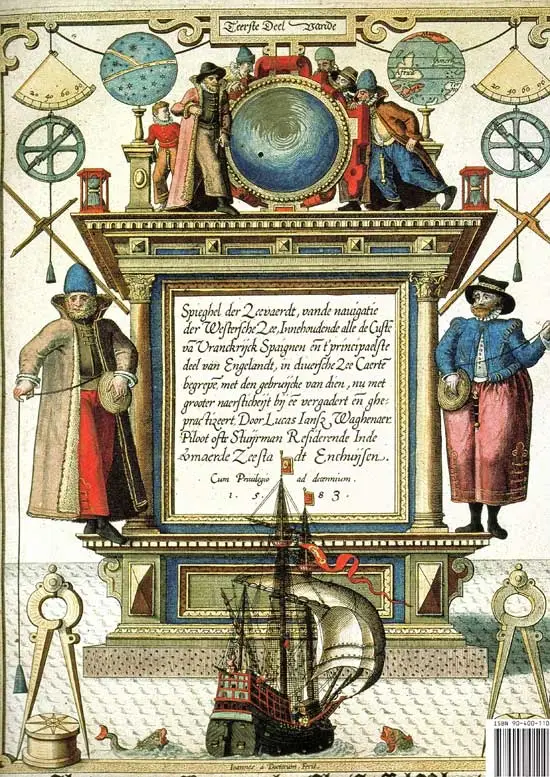 Teerste Deel Vande
20 40 60 90
20 40 60 90
Africa
Spieghel der Zeevaerdt, vande nauigatie
der Westersche Zee, Innehoudende alle de Custē
vā Vranckrijck Spaignen eñ t'principaelste
deel van Engelandt, in diuersche Zee Caertē
begrepē, met den gebruijcke van dien, nu met
grooter naersticheijt bij eē vergadert eñ ghe-
practizeert, Door Lucas Iansz Waghenaer
Piloot ofte Stuijrman Residerende Inde
vmaerde Zeesta dt Enchuijsen.
Cum Priuilegio ad decennium.
1 5 83.
Ioannes à Doetecum Fecit.
ISBN 90-400-110